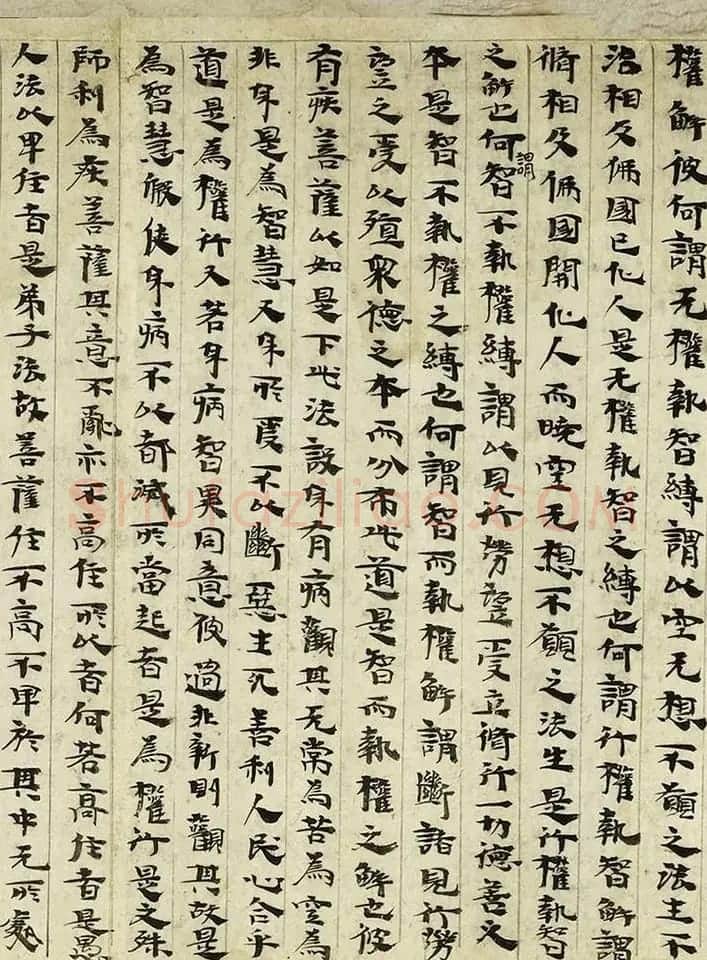 權解彼何謂无權執智縛謂以空无想不願之法生不
治相及佛國已化人是无權執智之縛也何謂行權執智解謂
脩相及佛國開化人而曉空无想不願之法生是行權執智
之解也何謂智不執權縛謂以見行勞望受立脩行一切德善之
本是智不執權之縛也何謂智而執權解謂斷諸見行勞
望之受以殖眾德之本而分布此道是智而執權之解也彼
有疾菩薩以如是下此法設身有病觀其无常為苦為空為
非身是為智慧又身所受不以斷惡生死善利人民心合乎
道是為權行又若身病智異同意彼過非新則觀其故是
為智慧假使身病不以都滅所當起者是為權行是文殊
師利為疾菩薩其意不亂亦不高住所以者何若高住者是愚
人法以卑住者是弟子法故菩薩住不高不卑於其中无所處
Shufaziliao.COM